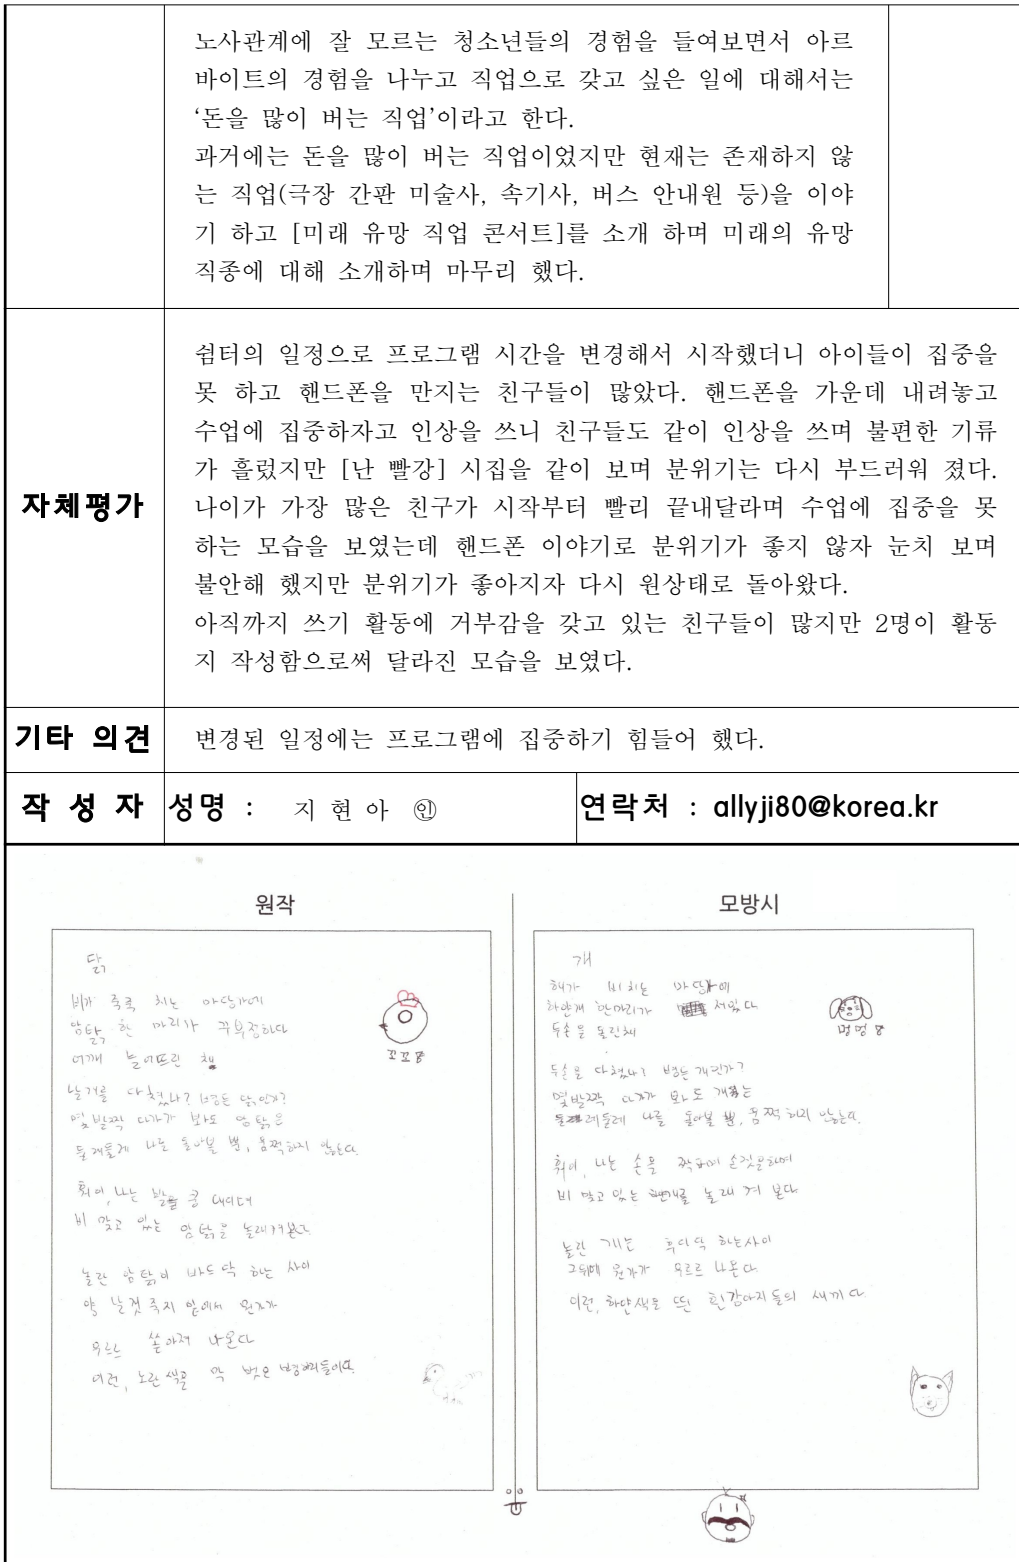 노사관계에 잘 모르는 청소년들의 경험을 들여보면서 아르
바이트의 경험을 나누고 직업으로 갖고 싶은 일에 대해서는
‘돈을 많이 버는 직업’이라고 한다.
과거에는 돈을 많이 버는 직업이었지만 현재는 존재하지 않
는 직업(극장 간판 미술사, 속기사, 버스 안내원 등)을 이야
기 하고 [미래 유망 직업 콘서트]를 소개 하며 미래의 유망
직종에 대해 소개하며 마무리 했다.
자체평가
쉼터의 일정으로 프로그램 시간을 변경해서 시작했더니 아이들이 집중을
못 하고 핸드폰을 만지는 친구들이 많았다. 핸드폰을 가운데 내려놓고
수업에 집중하자고 인상을 쓰니 친구들도 같이 인상을 쓰며 불편한 기류
가 흘렀지만 [난 빨강] 시집을 같이 보며 분위기는 다시 부드러워 졌다.
나이가 가장 많은 친구가 시작부터 빨리 끝내달라며 수업에 집중을 못
하는 모습을 보였는데 핸드폰 이야기로 분위기가 좋지 않자 눈치 보며
불안해 했지만 분위기가 좋아지자 다시 원상태로 돌아왔다.
아직까지 쓰기 활동에 거부감을 갖고 있는 친구들이 많지만 2명이 활동
지 작성함으로써 달라진 모습을 보였다.
기타 의견
변경된 일정에는 프로그램에 집중하기 힘들어 했다.
작 성 자 성명 : 지 현 아 ㊞ 연락처 : allyji80@korea.kr
원작
닭
비가 죽죽 치는 마당가에
암탉 한 마리가 꾸부정하다
어깨 늘어뜨린 채
꼬꼬꼬
날개를 다쳤나? 병든 닭인가?
몇발짝 다가가 봐도 암탉은
둘레둘레 나를 돌아볼 뿐, 움쩍하지 않는다.
훠이, 나는 발을 쿵 대며
비 맞고 있는 암탉을 놀래켜본다
놀란 암탉이 바드닥 하는 사이
양 날갯죽지 밑에서 뭔가가
우르르 쏟아져 나온다
이런, 노란색을 막 벗은 병아리들이다
모방시
개
해가 비치는 마당에
하얀개 한마리가 서있다
두손을 올린채
멍멍멍
두손을 다쳤나? 병든 개인가?
몇발짝 다가가 봐도 개는
둘레둘레 나를 돌아볼 뿐, 움쩍하지 않는다.
훠이, 나는 손을 짝 손짓을하며
비 맞고 있는 개를 놀래켜 본다
놀란 개는 후다닥 하는사이
그뒤에 뭔가가 우르르 나온다
이런, 하얀색을 띤 흰강아지들의 새끼다